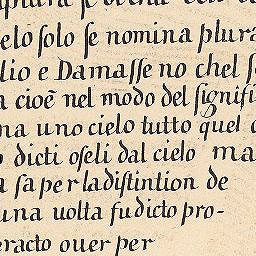 elo solo se nomina plura
lio e Damasse no chel s
a cioẽ nel modo del signifi
na uno cielo tutto quel
dicti oseli dal cielo ma
a sa per la distintion de
una uolta fu dicto pro-
eracto ouer per